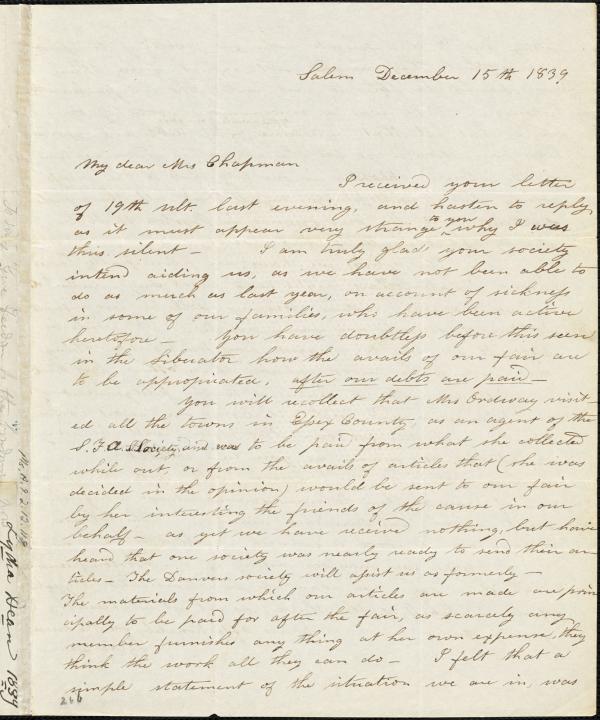 Salem December 15th 1839
My dear Mrs Chapman
I received your letter
of 19th ult. last evening, and hasten to reply,
as it must appear very strange to you why I was
thus silent – I am truly glad your society
intend aiding us, as we have not been able to
do as much as last year, on account of sickness
in some of our families, who have been active
heretofore – You have doubtless before this seen
in the Liberator how the avails of our fair are
to be appropriated, after our debts are paid –
You will recollect that Mrs Ordway visit-
ed all the towns in Essex County as an agent of the
S. F. A. S. Society, and was to be paid from what she collected
while out, or from the avails of articles that (she was
decided in the opinion) would be sent to our fair
by her interesting the friends of the cause in our
behalf – as yet we have received nothing, but have
heard that one society was nearly ready to send their ar
ticles – The Danvers society will assist us as formerly –
The materials from which our articles are made are prin
cipally to be paid for after the fair, as scarcely any
member furnishes any thing at her own expense, they
think the work all they can do – I felt that a
simple statement of the situation we are in, was
266
Ms. A. 9. 2. 12. 116
Lydia Dean 1839